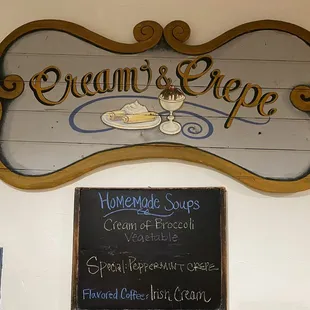 Cream & Crepe
Homemade Soups
Cream of Broccoli
Vegetable
Special: Peppermint crepe
Flavored Coffee: Irish Cream